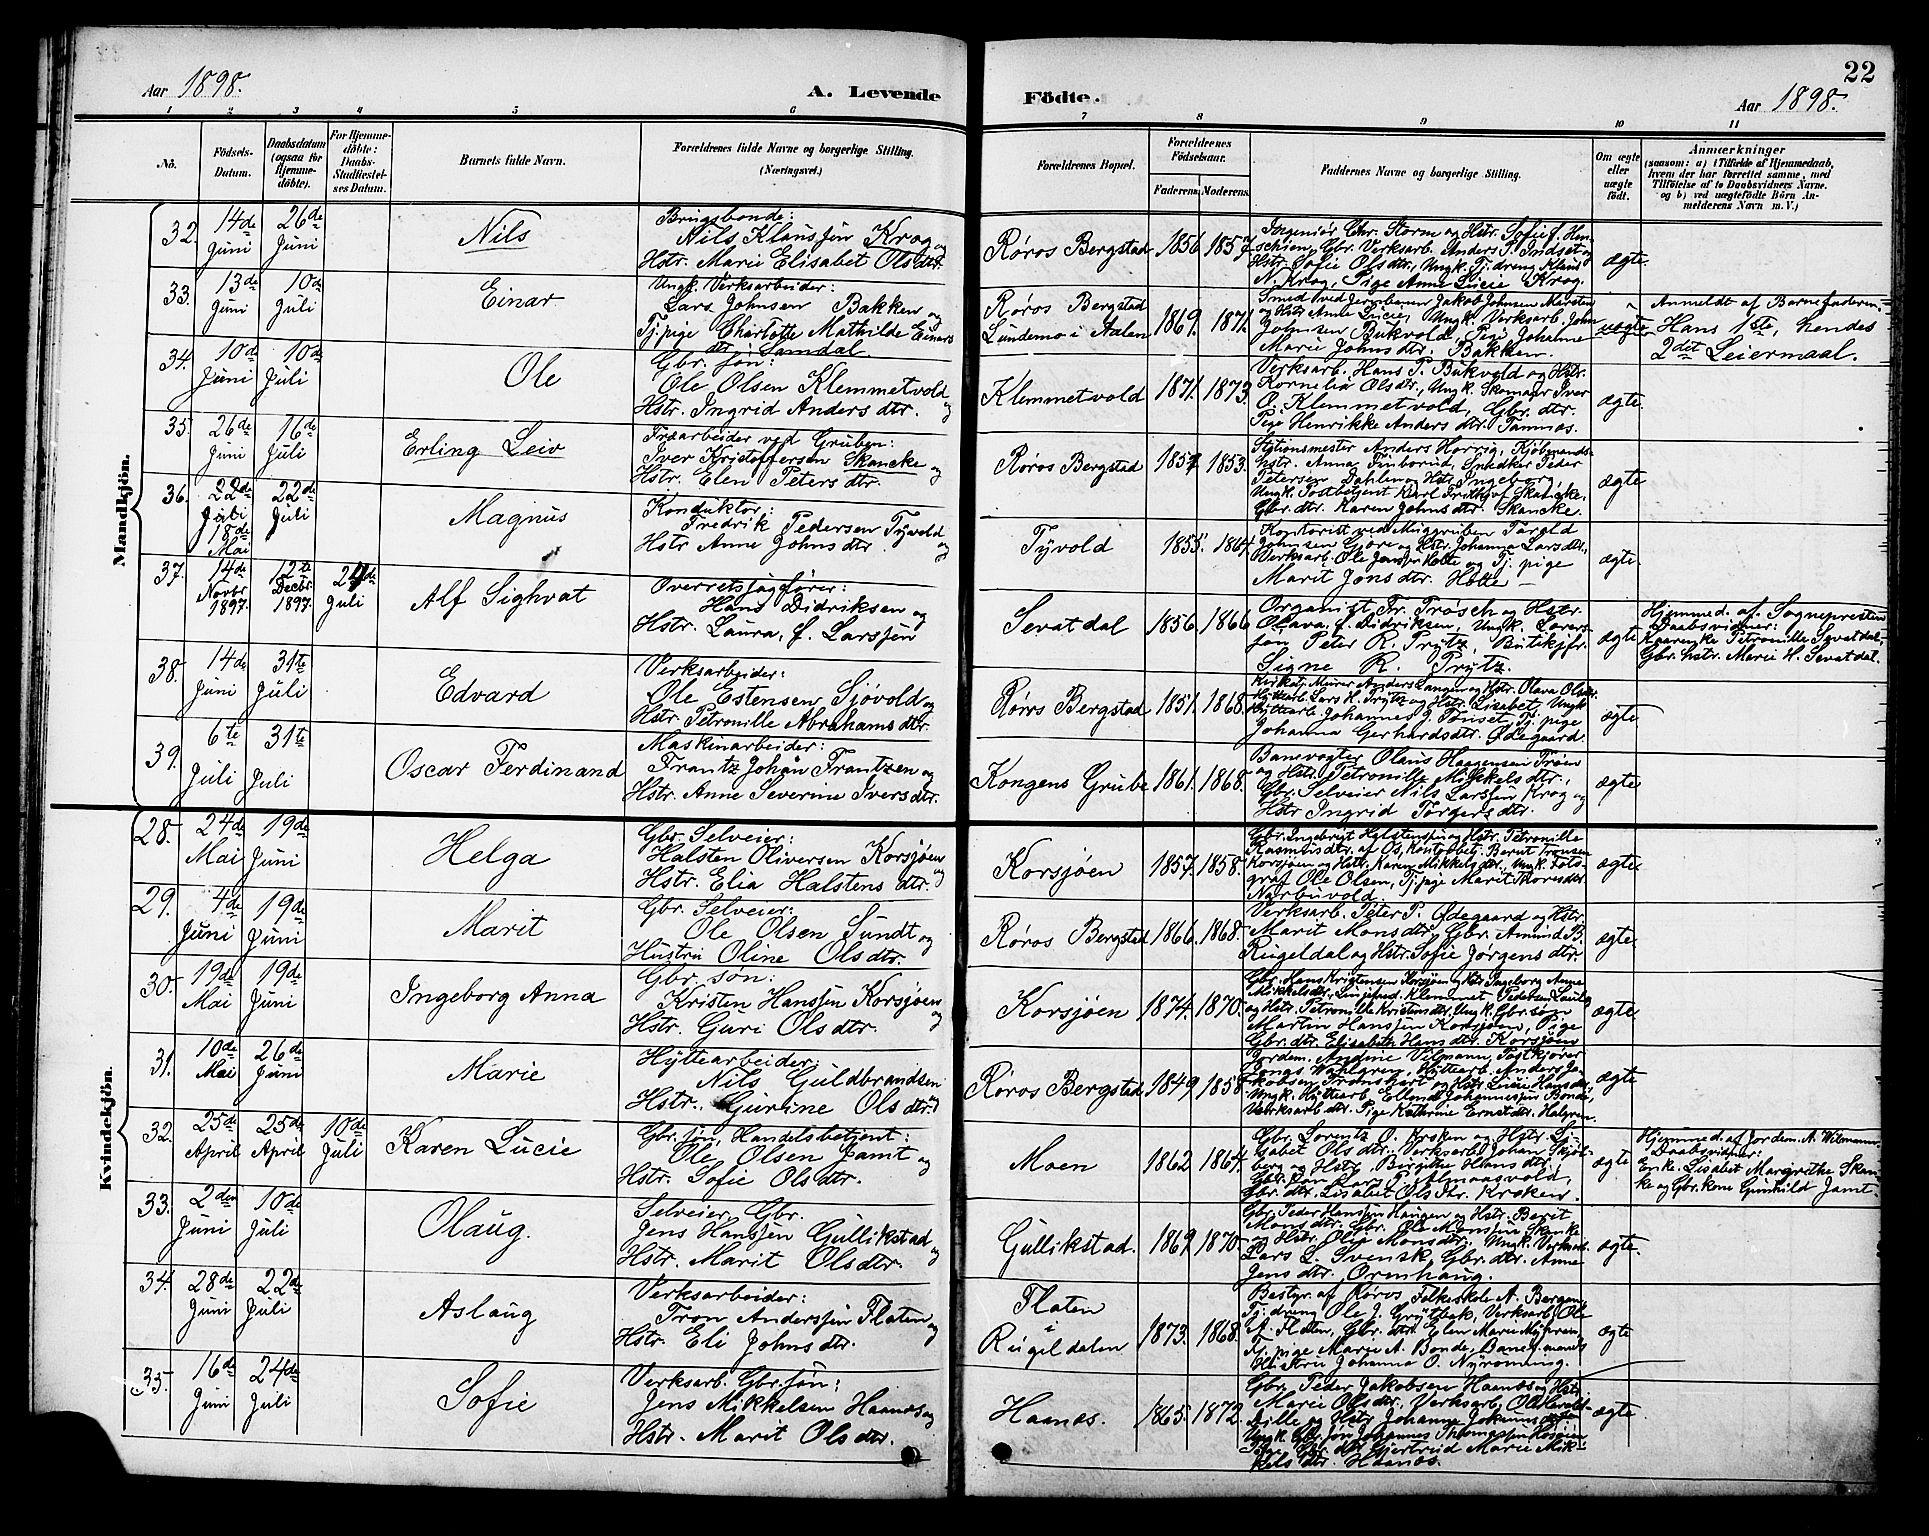 22
Aar 1898.
A. Levende
Födte.
Aar 1898.
1 2 3 4 5 6 7 8 9 10 11
No.
Födsels-Datum.
Daabsdatum (ogsaa for Hjemmedöbte).
For Hjemmedöbte: Daabs-Stadfæstelses Datum.
Barnets fulde Navn.
Forældrenes fulde Navne og borgerlige Stilling.
(Næringsvei.)
Forældrenes Bopæl.
Forældrenes Födselsaar.
Faderens. Moderens.
Faddernes Navne og borgerlige Stilling.
Om ægte eller uægte födt.
Anmærkninger
(saasom: a) i Tilfælde af Hjemmedaab, hvem der har forrettet samme, med Tilföielse af to Daabsvidners Navne, og b) ved uægtefödte Börn Anmelderens Navn m. V.)
Mandkjön.
32. 14de Juni 26de Juni Nils
Brugsbonde:
Nils Klaussøn Krog og
Hstr. Marie Elisabet Olsdtr.
Røros Bergstad 1856 1857.
Ingeniør Chr. Storm og Hstr. Sofie f. Hen-
schien, Gbr. Verksarb. Anders T. Indset og
Hstr. Sofie Olsdtr., Ungk. Tj.dreng Klaus
N. Krog, Pige Anne Lucie Krog.
ægte
33. 13de Juni 10de Juli Einar
Ungk. Verksarbeider:
Lars Johnsen Bakken og
Tj. pige Charlotte Mathilde Einars
dtr. Samdal.
Røros Bergstad
Lundemo i Aalen 1869. 1871.
Smed ved Jernbanen Jakob Johnsen
og Hstr. Anne Lucie, Ungk. Verksarb. John
Johnsen Bukvold, Pige Johanne
Marie Johnsdtr. Bakken.
uægte
Anmeldt af Barnefaderen
Hans 1ste, hendes
2det Leiermaal.
34. 10de Juni 10de Juli Ole
Gbr. søn:
Ole Olsen Klemmetvold og
Hstr. Ingrid Anders dtr.
Klemmetvold 1871. 1873.
Verksarb. Hans P. Bukvold og Hstr.
Kornelia Olsdtr., Ungk. Skomager Iver
O. Klemmetvold, Gbr. dtr.
Pige Henrikke Anders dtr. Tamnæs.
ægte.
35. 26de Juni 16de Juli Erling Leiv
Træarbeider ved Gruben:
Iver Kristoffersen Skancke og
Hstr. Elen Peters dtr.
Røros Bergstad 1857 1853.
Stationsmester Anders Horrig, Kjöbmands-
hstr. Anna Finborud, Snedker Peder
Petersen Dahlen og Hstr. Ingeborg,
Ungk. Postbetjent Karl Frithjof Skancke,
Gbr. dtr. Karen Johnsdtr. Skancke.
ægte
36. 22de Juli
18de Mai 22de Juli Magnus
Konduktør:
Fredrik Pedersen Tyvold og
Hstr. Anne Johnsdtr.
Tyvold 1855. 1864.
Kontorist ved Muggruben Tarald
Johnsen Gjære og Hstr. Johanna Larsdtr.,
Verksarb. Ole Jonssøn Hotte og Tj. pige
Marit Jonsdtr. Hotte —
ægte.
37. 14de Novbr. 1897. 12te Decbr. 1897. 24de Juli Alf Sighvat
Overretssagfører:
Hans Didriksen og
Hstr. Laura, f. Larssøn
Sevatdal 1856. 1866
Organist Fr. Trøsch og Hstr.
Olava, f. Didriksen, Ungk. Lorens-
søn Peter R. Prytz, Butikjfr.
Signe R. Prytz.
ægte
Hjemmed. af Sognepresten
Daabsvidner:
Kaarenke Petronille Sevatdal,
Gbr. hstr. Marie H. Sevatdal.
38. 14de Juni 31te Juli Edvard
Verksarbeider:
Ole Estensen Sjövold og
Hstr. Petronille Abrahamsdtr.
Røros Bergstad 1851. 1868.
Murer Anders Langen og Hstr. Olava Olsdtr.
Hyttearb. Lars H. Prytz og Hstr. Lisabet, Ungk.
Hyttearb. Johannes J. Tønset, Tj. pige
Johanna Gerhardsdtr. Ødegaard.
ægte.
39. 6te Juli 31te Juli Oscar Ferdinand
Maskinarbeider:
Frantz Johan Frantzen og
Hstr. Anne Severine Iversdtr.
Kongens Grube 1861. 1868.
Banevogter Olaus Haagensen Trøen
og Hstr. Petronille Mikkelsdtr.,
Gbr. Selveier Nils Larssøn Krog og
Hstr Ingrid Torgersdtr.
ægte
Kvindekjön.
28. 24de Mai 19de Juni Helga
Gbr. Selveier:
Halsten Oliversen Korsjøen og
Hstr. Elia Halstens dtr.
Korsjøen 1857. 1858.
Gbr. Ingebrigt Halstenssøn og Hstr. Petronille
Rasmusdtr. af Os, Kontorbetj. Bernt Tronsen
Korsjøen og Hstr. Karen Mikkelsdtr., Ungk. Foto-
graf Ole Olsen, Tj. pige Marit Thoresdtr.
Narbuvold.
ægte
29. 4de Juni 19de Juni Marit
Gbr. Selveier:
Ole Olsen Sundt og
Hustru Oline Olsdtr.
Røros Bergstad 1866. 1868.
Verksarb. Peter P. Ødegaard og Hstr.
Marit Monsdtr., Gbr. Amund B.
Rugeldal og Hstr. Sofie Jørgensdtr
ægte
30. 19de Mai 19de Juni Ingeborg Anna
Gbr. søn:
Kristen Hanssøn Korsjøen og
Hstr. Guri Olsdtr.
Korsjøen 1874. 1870.
Gbr. Hans Kristensen Korsjøen og Hstr. Ingeborg Anna
Mikkelsdtr., Klemmet Pedersen
og Hstr. Petronille Kristensdtr., Ungk. Gbr. søn
Martin Hanssøn Korsjøen, Pige
Gbr. dtr. Elisabeth Hansdtr. Korsjøen
ægte
31. 10de Mai 26de Juni Marie
Hyttearbeider:
Nils Guldbrandsen og
Hstr. Gurine Olsdtr.
Røros Bergstad 1849. 1858.
Jordem. Andrine Vilmann, Postkjører
Jonas Wahlgren, Hyttearb. Anders Ja-
kobsen Trønshart og Hstr. Lucie Hansdtr.,
Ungk. Hyttearb. Ellend Johannessøn Bonde,
Verksarb dtr. Pige Kathrine Ernstdtr. Halgren.
ægte
32. 25de April 25de April 10de Juli Karen Lucie
Gbr. søn, Handelsbetjent:
Ole Olsen Jamt og
Hstr. Sofie Olsdtr.
Moen 1862 1864.
Gbr. Lorentz O. Kroken og Hstr. Li-
sabet Olsdtr., Verksarb. Johan Skjøl-
berg og Hstr. Bergithe Hansdtr.,
Gbr. søn Lars P. Galmaagvold,
Gbr. dtr. Lisabet Olsdtr. Kroken.
ægte
Hjemmed. af Jordem. A. Vilmann
Daabsvidner:
Enke Lisabet Margrethe Skan-
ke og Gbr. kone Gunhild Jamt.
33. 2den Juni 10de Juli Olaug.
Selveier, Gbr.
Jens Hanssøn Gullikstad og
Hstr. Marit Olsdtr.
Gullikstad. 1869 1870.
Gbr. Peder Hanssøn Haugen og Hstr. Berit
Monsdtr., Gbr. Ole Monssøn Skanke
og Hstr. Olia Monsdtr., Ungk. Verksarb.
Lars L. Svensk, Gbr. dtr. Anne
Jensdtr. Ornhaug.
ægte.
34. 28de Juni 22de Juli Aslaug
Verksarbeider:
Tron Anderssøn Flaten og
Hstr. Eli Johnsdtr.
Flaten
i
Rugeldalen 1873. 1868.
Bestyr. af Røros Folkeskole A. Bergan,
Tj. dreng Ole J. Grytbak, Verksarb. Ole
A. Flaten, Gbr. dtr. Elen Marie Myhren,
Tj. pige Marie A. Bonde, Banef.mands
Hustru Johanna O. Nyrønning.
ægte
35. 16de Juni 24de Juli Sofie
Verksarb. Gbr. søn:
Jens Mikkelsen Haanæs og
Hstr. Marit Olsdtr.
Haanæs. 1865. 1872.
Gbr. Peder Jakobsen Haanæs og Hstr.
Marie Olsdtr., Verksarb.
og Hstr. Johanna
Ungk. Gbr. søn Johannes Thomassøn
Pige Gbr. dtr. Gjertrud Marie Mik-
kelsdtr. Haanæs.
ægte.